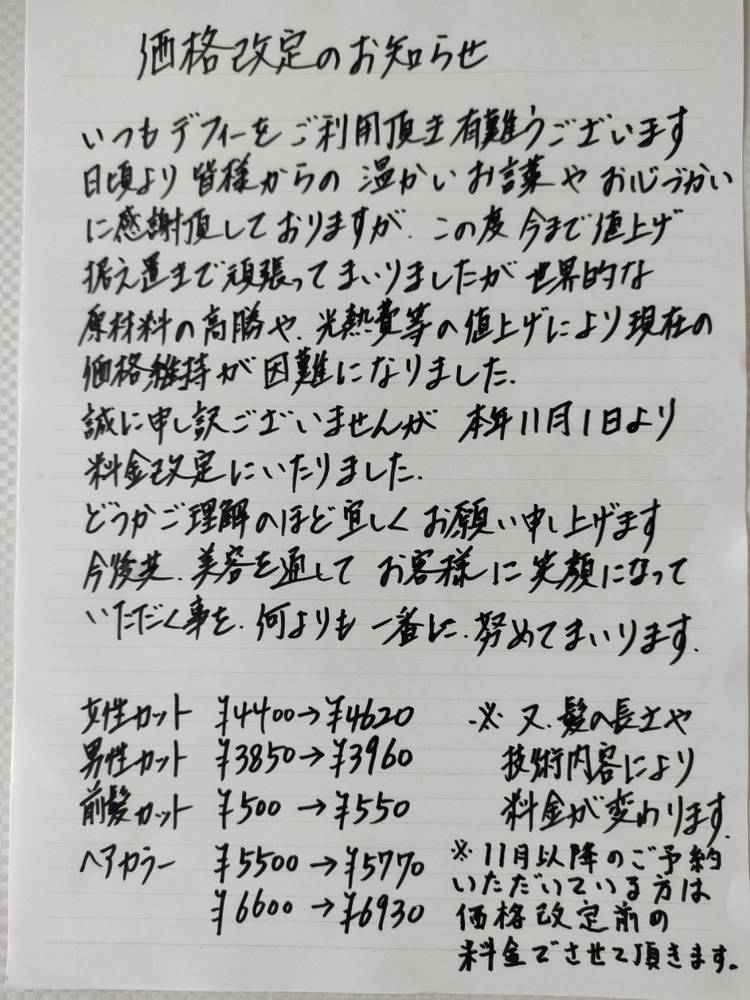 価格改定のお知らせ
いつもデフィーをご利用頂き有難うございます
日頃より皆様からの温かいお言葉やお心づかい
に感謝頂しておりますが、この度今まで値上げ
据え置きで頑張ってまいりましたが世界的な
原材料の高勝や、光熱費等の値上げにより現在の
価格維持が困難になりました.
誠に申し訳ございませんが 本年11月1日より
料金改定にいたりました.
どうかご理解のほど宜しくお願い申し上げます
今後共、美容を通してお客様に笑顔になって
いただく事を、何よりも一番に、努めてまいります.
女性カット ¥4400→¥4620
男性カット ¥3850→¥3960
前髪カット ¥500→¥550
ヘアカラー ¥5500→¥5770
¥6600→¥6930
※又、髪の長さや
技術内容により
料金が変わります.
※11月以降のご予約
いただいている方は
価格改定前の
料金でさせて頂きます。